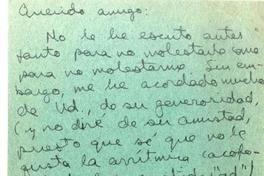 Querido amigo:
No le he escrito antes
tanto para no molestarlo que
para no molestarme. Sin em-
bargo, me he acordado mucho
de Ud, de su generosidad,
(y no diré de su amistad,
puesto que sé que no le
gusta la arritmia (acep-